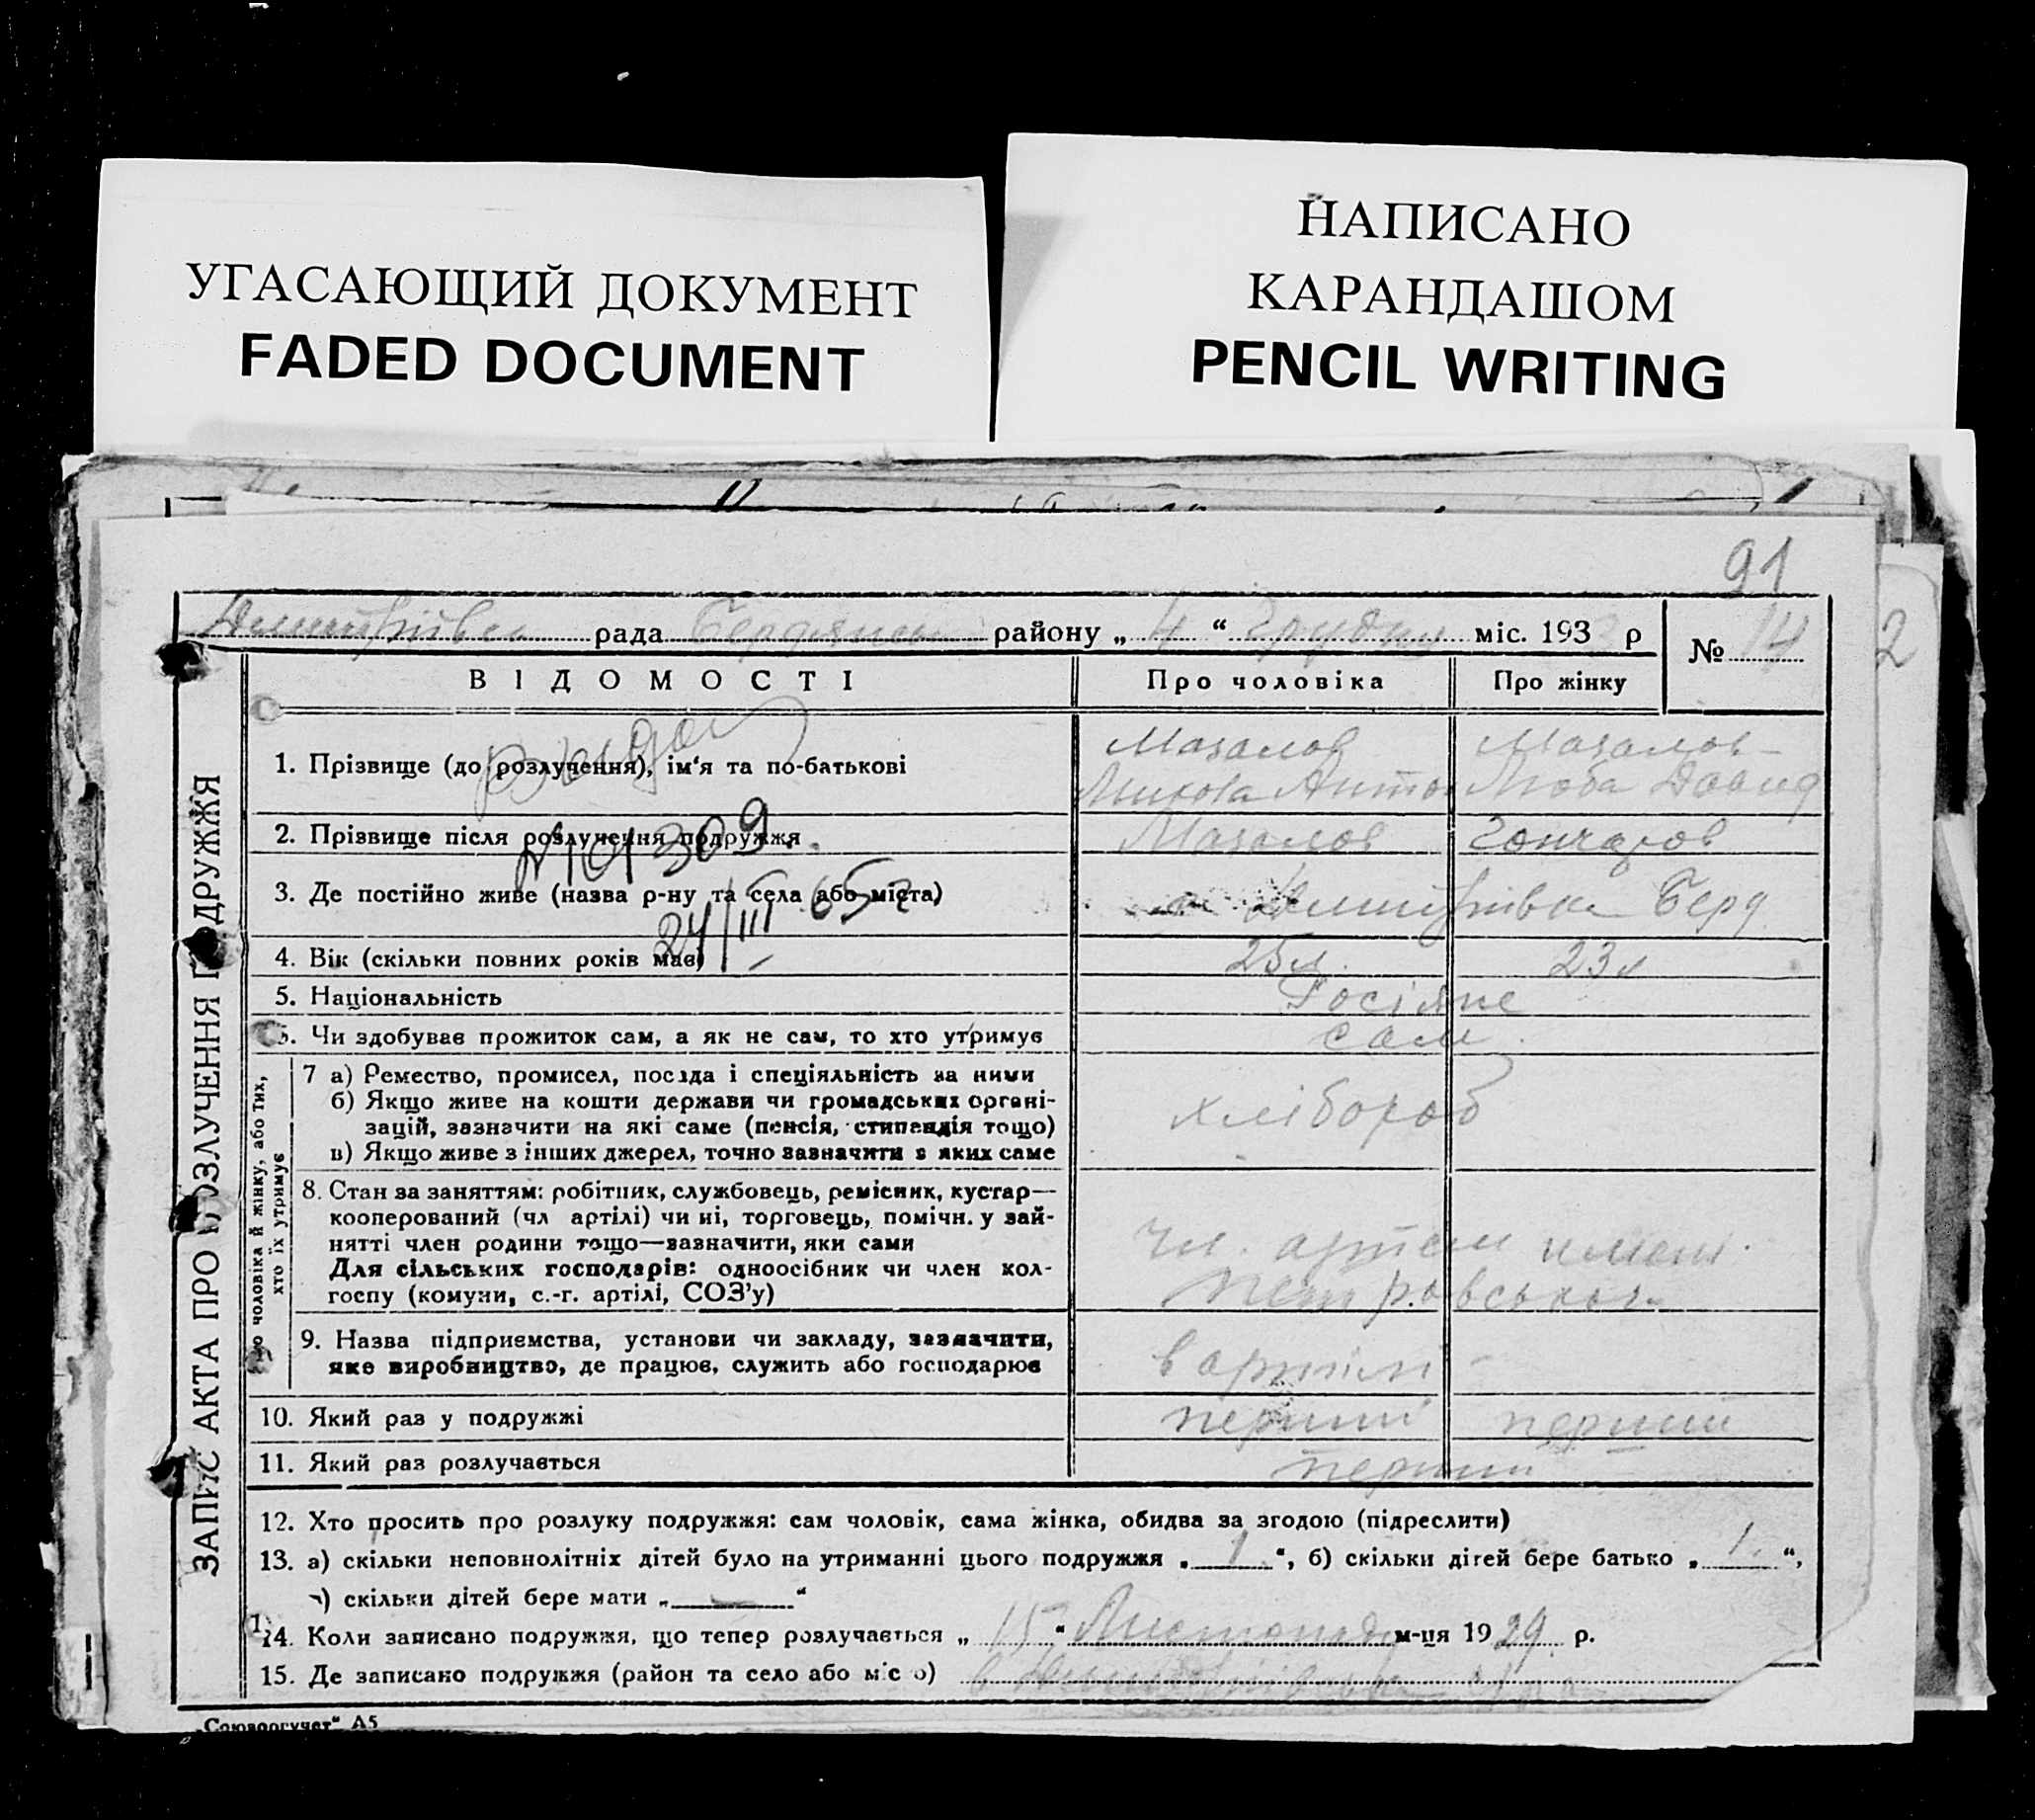 УГАСАЮЩИЙ ДОКУМЕНТ
FADED DOCUMENT
НАПИСАНО
КАРАНДАШОМ
PENCIL WRITING
91
рада района „ 4 “ Грудня міс. 193 р
№ 14
2
ЗАПИС АКТА ПРО РОЗЛУЧЕННЯ ПОДРУЖЖЯ
ВІДОМОСТІ
Про чоловіка
Про жінку
1. Прізвище (до розлучення), ім‘я та по-батькові
Мазалов
Микола Антон
Мазалов-
Люба Давид
2. Прізвище після розлучення подружжя
Мазалов
Гончаров
3. Де постійно живе (назва р-ну та села або міста)
Берд
24/III 65
4. Вік (скільки повних років має)
25 л.
23 л
5. Національність
Росіяне
6. Чи здобуває прожиток сам, а як не сам, то хто утримує
сам
чоловіка й жінку, або тих,
хто їх утримує
7 а) Ремество, промисел, посада і спеціяльність за ними
б) Якщо живе на кошти держави чи громадських органі-
зацій, зазначити на які саме (пенсія, стипендія тощо)
в) Якщо живе з інших джерел, точно зазначити з яких саме
хлібороб
8. Стан за заняттям: робітник, службовець, ремісник, кустар—
кооперований (чл артілі) чи ні, торговець, помічн. у зай-
нятті член родини тощо—зазначити, яки сами
Для сільських господарів: одноосібник чи член кол-
госпу (комуни, с.-г. артілі, СОЗ’у)
чл. артели имени
Петровського
9. Назва підприємства, установи чи закладу, зазначити,
яке виробництво, де працює, служить або господарює
в артілі -
10. Який раз у подружжі
перший
перший
11. Який раз розлучається
перший
12. Хто просить про розлуку подружжя: сам чоловік, сама жінка, обидва за згодою (підреслити)
13. а) скільки неповнолітніх дітей було на утриманні цього подружжя „ 1 “, б) скільки дітей бере батько „ 1. “,
в) скільки дітей бере мати „ — “
14. Коли записано подружжя, що тепер розлучається „ 15 “ Листопада м-ця 1929 р.
15. Де записано подружжя (район та село або місто)
„Союзоргучет“ А5